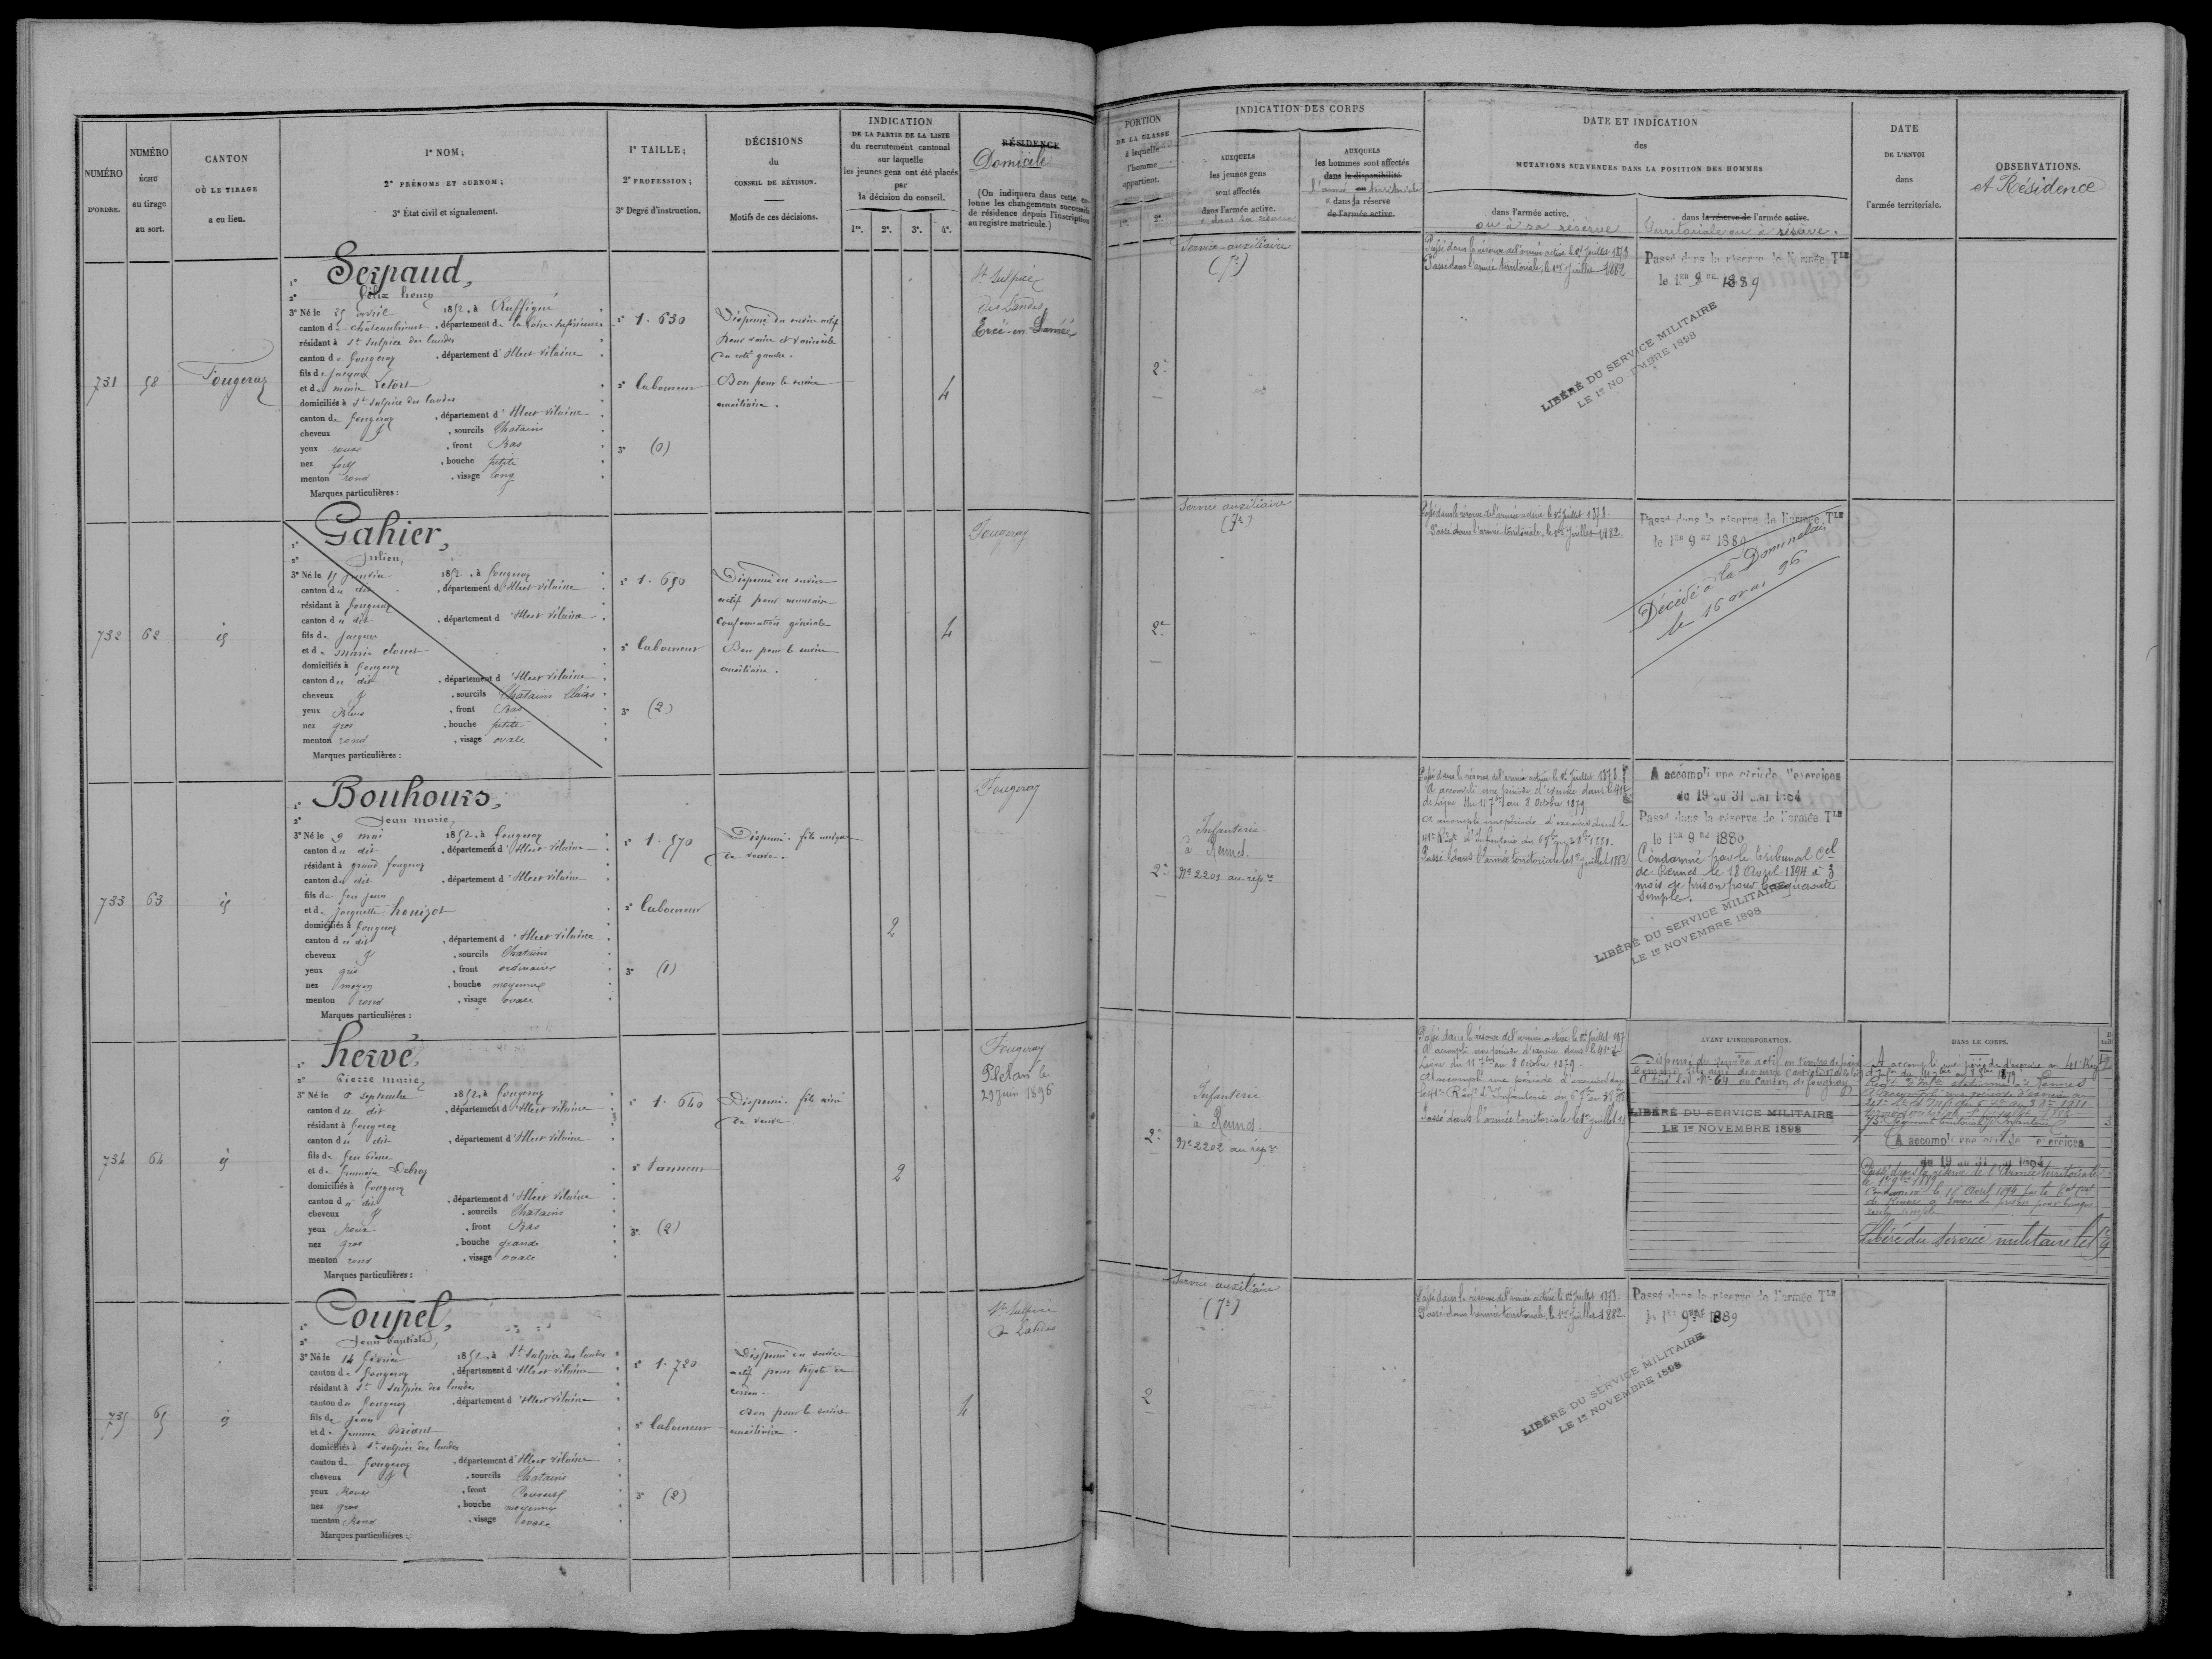 NUMÉRO
D'ORDRE.
NUMÉRO
ÉCHU
au tirage
au sort.
CANTON
OÙ LE TIRAGE
a eu lieu.
1° NOM;
2° PRÉNOMS ET SURNOM;
3° État civil et signalement.
1° TAILLE;
2° PROFESSION;
3° Degré d'instruction.
DÉCISIONS
du
CONSEIL DE RÉVISION.
Motifs de ces décisions.
INDICATION
DE LA PARTIE DE LA LISTE
du recrutement cantonal
sur laquelle
les jeunes gens ont été placés
par
la décision du conseil.
1re. 2e. 3e. 4e.
RÉSIDENCE
Domicile
(On indiquera dans cette co-
lonne les changements successifs
de résidence depuis l'inscription
au registre matricule.)
PORTION
DE LA CLASSE
à laquelle
l'homme
appartient.
1re. 2e.
INDICATION DES CORPS
AUXQUELS
les jeunes gens
sont affectés
dans l'armée active.
AUXQUELS
les hommes sont affectés
dans la disponibilité
dans la réserve
de l'armée active.
DATE ET INDICATION
des
MUTATIONS SURVENUES DANS LA POSITION DES HOMMES
dans l'armée active.
ou à sa réserve
dans la réserve de l'armée active.
Territoriale ou à réserve.
DATE
DE L'ENVOI
dans
l'armée territoriale.
OBSERVATIONS.
et Résidence
731
58
Fougeray
1° Serpaud,
2° félix henry
3° Né le 25 avril 1852, à Ruffigné
canton de Châteaubriant, département de la Loire-Inférieure
résidant à St Sulpice des landes
canton de fougeray, département d'Ille et vilaine
fils de Jacques
et de marie Letort
domiciliés à St Sulpice des landes
canton de fougeray, département d'Ille et vilaine
cheveux, sourcils Chatains
yeux roux, front Bas
nez fort, bouche petite
menton rond, visage long
Marques particulières :
1° 1. 630
2° laboureur
3° (0)
Dispensé du service actif
Bon pour le service
auxiliaire.
4
St Sulpice
des Landes
Ercé-en-Lamée
2e
Service auxiliaire
(7e)
Passé dans la réserve de l'armée active le 1er Juillet 1878
Passé dans l'armée territoriale, le 1er Juillet 1882
Passé dans la réserve de l'armée Tle
le 1er 9bre 1889
LIBÉRÉ DU SERVICE MILITAIRE
LE 1er NOVEMBRE 1898
732
62
id
1° Gahier,
2° Julien,
3° Né le 15 Janvier 1852, à fougeray
canton du dit, département d'Ille et vilaine
résidant à fougeray
canton du dit, département d'Ille et vilaine
fils de Jacques
et de marie Clouet
domiciliés à fougeray
canton du dit, département d'Ille et vilaine
cheveux, sourcils Chatains Clairs
yeux Bleus, front Bas
nez gros, bouche petite
menton rond, visage ovale
Marques particulières :
1° 1. 650
2° laboureur
3° (2)
Dispensé du service
actif pour mauvaise
Conformation générale
Bon pour le service
auxiliaire.
4
Fougeray
2e
Service auxiliaire
(7e)
Passé dans la réserve de l'armée active le 1er Juillet 1878.
Passé dans l'armée territoriale, le 1er Juillet 1882.
Passé dans la réserve de l'armée Tle
le 1er 9bre 1889
Décédé à la Dominelais
le 16 mai 96
733
63
id
1° Bouhours,
2° Jean marie,
3° Né le 9 mai 1852, à fougeray
canton du dit, département d'Ille et vilaine
résidant à grand fougeray
canton du dit, département d'Ille et vilaine
fils de feu jean
et de Jacquette
domiciliés à fougeray
canton du dit, département d'Ille et vilaine
cheveux, sourcils Chatains
yeux gris, front ordinaire
nez moyen, bouche moyenne
menton rond, visage ovale
Marques particulières :
1° 1. 570
2° laboureur
3° (1)
Dispensé. fils unique
de veuve.
2
Fougeray
2e
Infanterie
à Rennes.
No 2201 au rép.re
Passé dans la réserve de l'armée active le 1er Juillet 1878.
A accompli une période d'exercice dans le 41e
de Ligne du 11 7bre au 8 Octobre 1879
A accompli une période d'exercices dans le
41e Régt d'Infanterie du 6 7bre au 3 8bre 1881.
Passé dans l'armée territoriale le 1er Juillet 1882
A accompli une période d'exercices
du 19 au 31 mai 1884
Passé dans la réserve de l'armée Tle
le 1er 9bre 1889
Condamné par le tribunal Cel
de Rennes le 18 Avril 1894 à 3
mois de prison pour banqueroute
simple.
LIBÉRÉ DU SERVICE MILITAIRE
LE 1er NOVEMBRE 1898
734
64
id
1° hervé,
2° Pierre marie,
3° Né le 8 septembre 1852, à fougeray
canton du dit, département d'Ille et vilaine
résidant à fougeray
canton du dit, département d'Ille et vilaine
fils de feu Pierre
et de françoise Debray
domiciliés à fougeray
canton du dit, département d'Ille et vilaine
cheveux, sourcils Chatains
yeux Roux, front Bas
nez gros, bouche grande
menton rond, visage ovale
Marques particulières :
1° 1. 640
2° tanneur
3° (2)
Dispensé. fils ainé
de veuve.
2
Fougeray
Plélan le
29 Juin 1896
2e
Infanterie
à Rennes.
No 2202 au rép.re
Passé dans la réserve de l'armée active le 1er Juillet 187
A accompli une période d'exercice dans le 41e de
Ligne du 11 7bre au 8 Octobre 1879.
A accompli une période d'exercices dans
le 41e Régt d'Infanterie du 6 7bre au 3 8bre
Passé dans l'armée territoriale le 1er Juillet 18
AVANT L'INCORPORATION.
Dispensé du service actif en temps de paix
comme fils ainé de veuve
A tiré le No 64 au canton de fougeray
LIBÉRÉ DU SERVICE MILITAIRE
LE 1er NOVEMBRE 1898
DANS LE CORPS.
A accompli une période d'exercice au 41e Régt
A accompli une période d'exercices
du 19 au 31 mai 1884
Passé dans la réserve de l'Armée territoriale
le 1er 9bre 1889
Condamné le 18 Avril 1894 par le
de Rennes à 3 mois de prison pour banque
route simple
Libéré du Service militaire le 1er
735
65
id
1° Coupel,
2° Jean Baptiste,
3° Né le 14 février 1852, à St Sulpice des landes
canton de fougeray, département d'Ille et vilaine
résidant à St Sulpice des landes
canton de fougeray, département d'Ille et vilaine
fils de jean
et de Jeanne Briant
domiciliés à St Sulpice des landes
canton de fougeray, département d'Ille et vilaine
cheveux, sourcils Chatains
yeux Roux, front Couvert
nez gros, bouche moyenne
menton Rond, visage ovale
Marques particulières :
1° 1. 720
2° laboureur
3° (2)
Dispensé du service
actif pour
Bon pour le service
auxiliaire.
4
St Sulpice
des Landes
2
Service auxiliaire
(7e)
Passé dans la réserve de l'armée active le 1er Juillet 1878.
Passé dans l'armée territoriale, le 1er Juillet 1882
Passé dans la réserve de l'armée Tle
le 1er 9bre 1889
LIBÉRÉ DU SERVICE MILITAIRE
LE 1er NOVEMBRE 1898